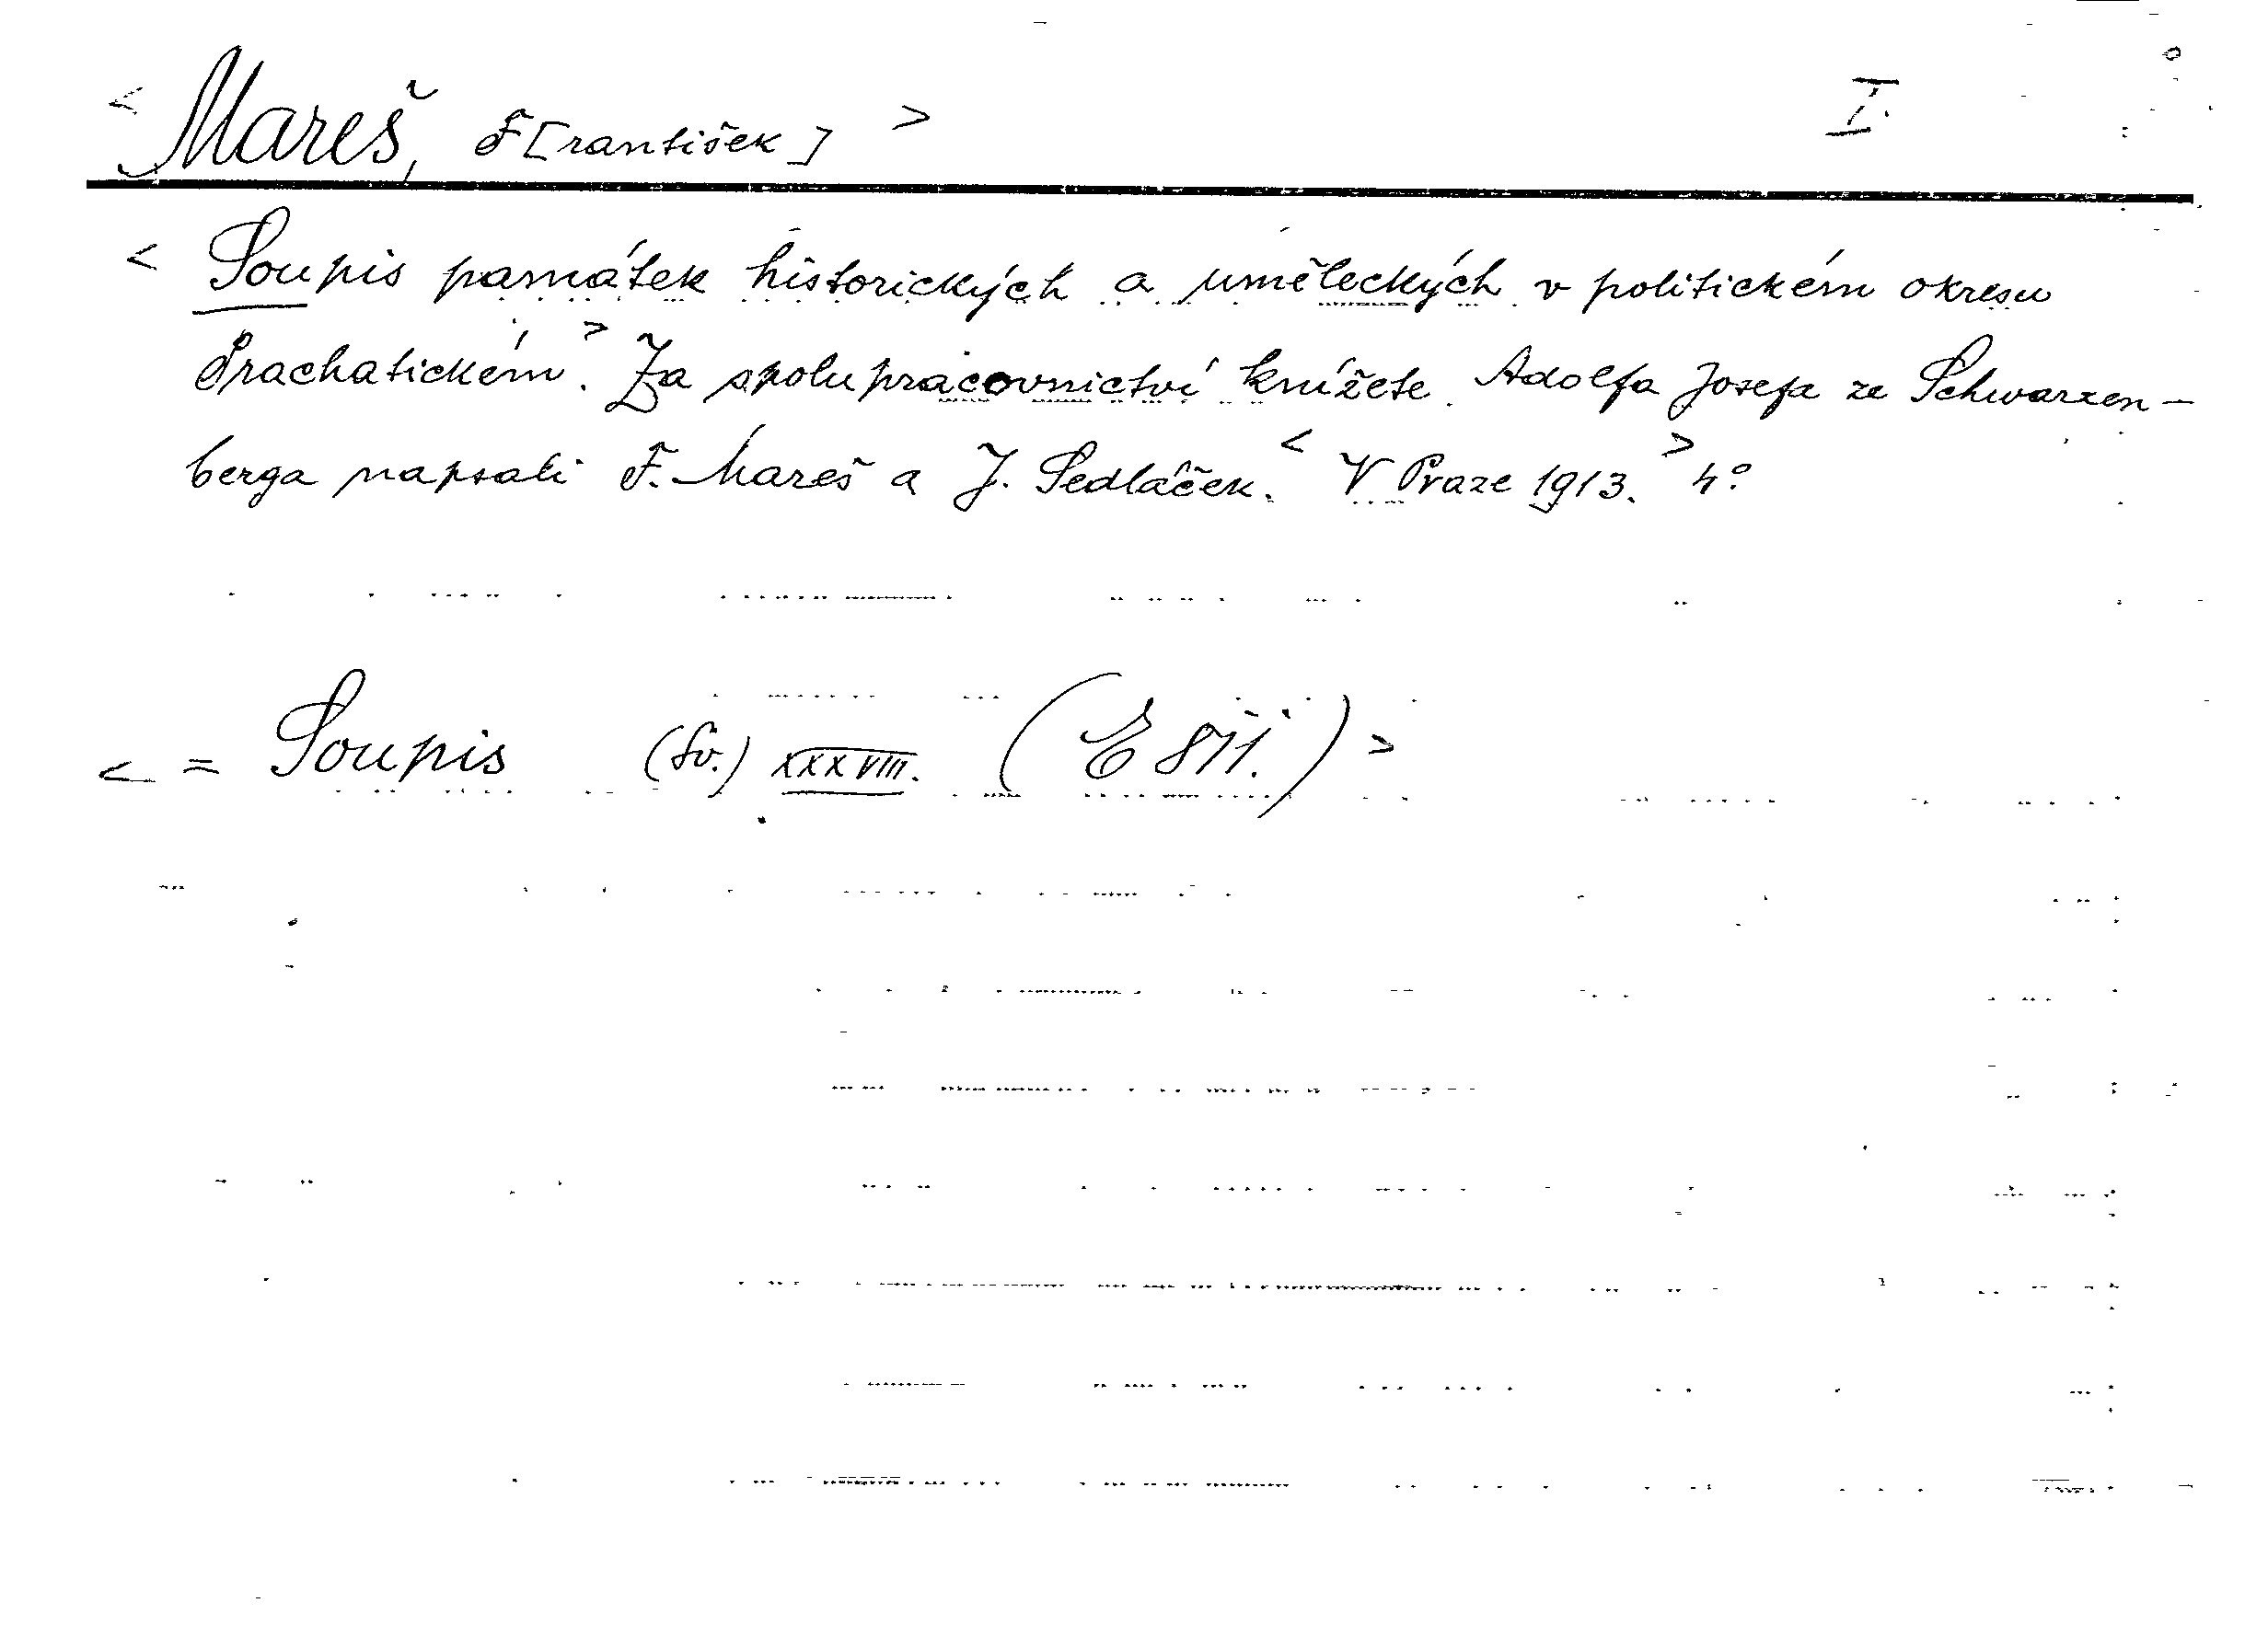 < Mareš, F[rantišek] > I.
< Soupis památek historických a uměleckých v politickém okresu
Prachatickém. > Za spolupracovnictví knížete Adolfa Josefa ze Schwarzen-
berga napsali F. Mareš a J. Sedláček. < V Praze 1913. > 4°
< = Soupis (Sv.) XXXVIII. (E 811.) >